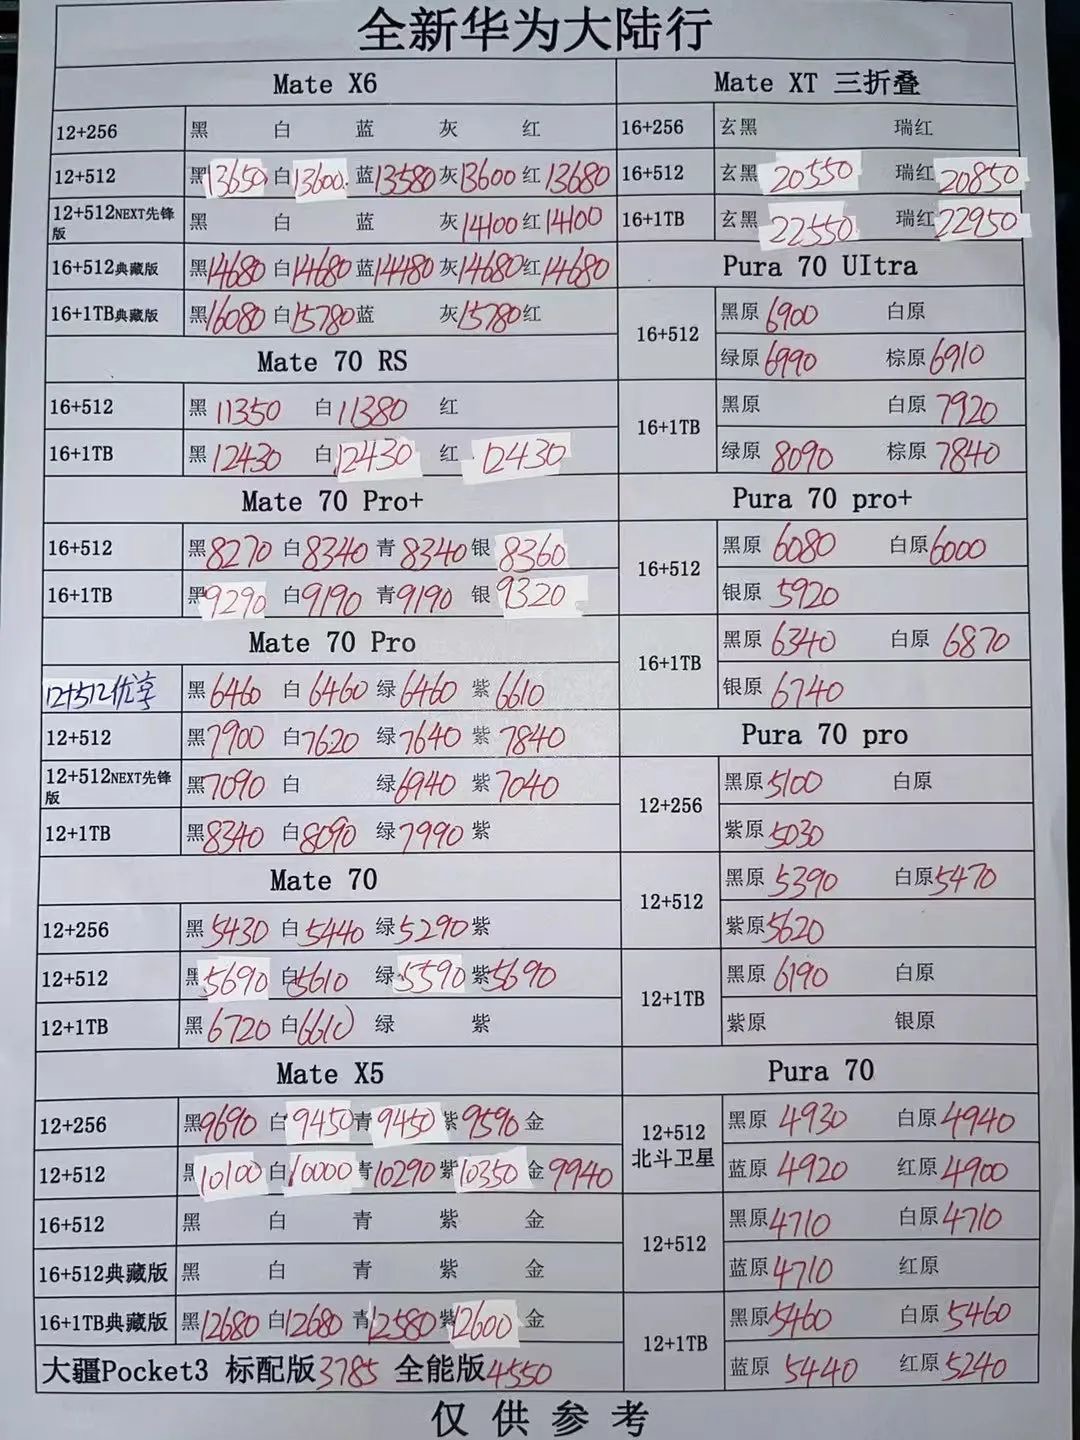 全新华为大陆行
Mate X6
12+256 黑 白 蓝 灰 红
12+512 黑13650 白13600 蓝13580 灰13600 红13680
12+512NEXT先锋版 黑 白 蓝 灰14100 红14100
16+512典藏版 黑14680 白14680 蓝14480 灰14680 红14680
16+1TB典藏版 黑16080 白15780 蓝 灰15780 红
Mate 70 RS
16+512 黑 11350 白 11380 红
16+1TB 黑 12430 白 12430 红 12430
Mate 70 Pro+
16+512 黑8270 白8340 青8340 银8360
16+1TB 黑9290 白9190 青9190 银9320
Mate 70 Pro
12+512优享 黑6460 白6460 绿6460 紫6610
12+512 黑7900 白7620 绿7640 紫7840
12+512NEXT先锋版 黑7090 白 绿6940 紫7040
12+1TB 黑8340 白8090 绿7990 紫
Mate 70
12+256 黑5430 白5440 绿5290 紫
12+512 黑5690 白5610 绿5590 紫5690
12+1TB 黑6720 白6610 绿 紫
Mate X5
12+256 黑9690 白9450 青9450 紫9590 金
12+512 黑10100 白10000 青10290 紫10350 金9940
16+512 黑 白 青 紫 金
16+512典藏版 黑 白 青 紫 金
16+1TB典藏版 黑12680 白12680 青12580 紫12600 金
大疆Pocket3 标配版3785 全能版4550
Mate XT 三折叠
16+256 玄黑 瑞红
16+512 玄黑 20550 瑞红20850
16+1TB 玄黑 22550 瑞红22950
Pura 70 UItra
16+512
黑原6900 白原
绿原6990 棕原6910
16+1TB
黑原 白原 7920
绿原 8090 棕原 7840
Pura 70 pro+
16+512
黑原 6080 白原6000
银原 5920
16+1TB
黑原 6340 白原 6870
银原 6740
Pura 70 pro
12+256
黑原5100 白原
紫原5030
12+512
黑原 5390 白原5470
紫原5620
12+1TB
黑原 6190 白原
紫原 银原
Pura 70
12+512
北斗卫星
黑原 4930 白原4940
蓝原 4920 红原4900
12+512
黑原4710 白原4710
蓝原4710 红原
12+1TB
黑原5460 白原5460
蓝原 5440 红原5240
仅供参考